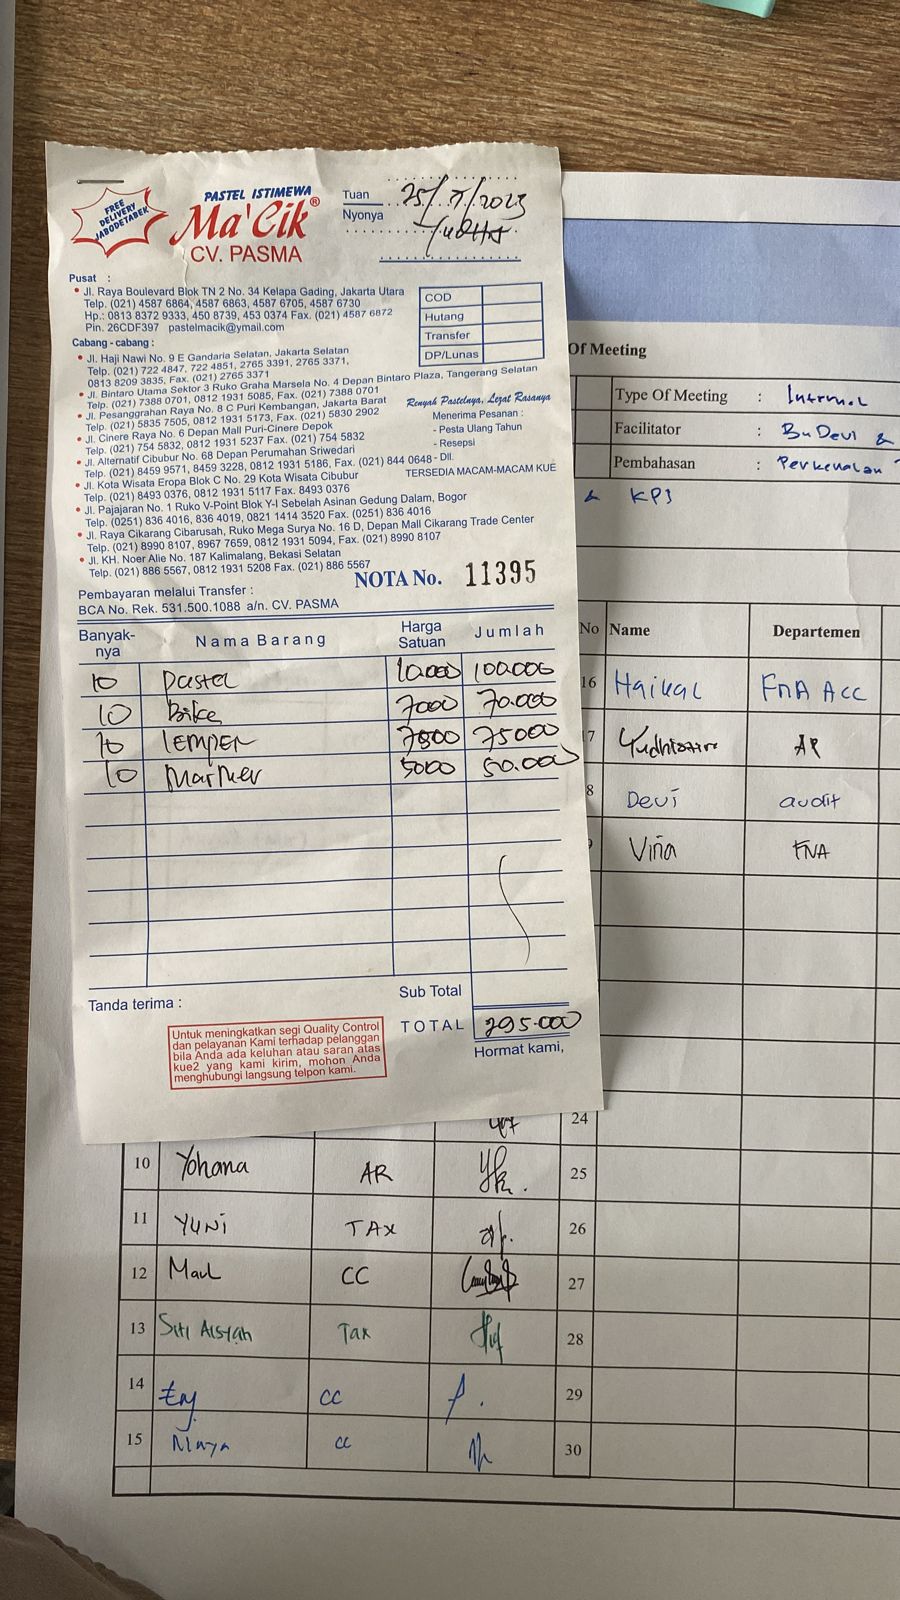 FREE
DELIVERY
JABODETABEK
PASTEL ISTIMEWA
Ma'Cik®
CV. PASMA
Tuan
Nyonya
25/ /2023
Yudha
Pusat :
• Jl. Raya Boulevard Blok TN 2 No. 34 Kelapa Gading, Jakarta Utara
Telp. (021) 4587 6864, 4587 6863, 4587 6705, 4587 6730
Hp.: 0813 8372 9333, 450 8739, 453 0374 Fax. (021) 4587 6872
Pin. 26CDF397 pastelmacik@ymail.com
COD
Hutang
Transfer
DP/Lunas
Cabang - cabang :
• Jl. Haji Nawi No. 9 E Gandaria Selatan, Jakarta Selatan
Telp. (021) 722 4847, 722 4851, 2765 3391, 2765 3371,
0813 8209 3835, Fax. (021) 2765 3371
• Jl. Bintaro Utama Sektor 3 Ruko Graha Marsela No. 4 Depan Bintaro Plaza, Tangerang Selatan
Telp. (021) 7388 0701, 0812 1931 5085, Fax. (021) 7388 0701
• Jl. Pesanggrahan Raya No. 8 C Puri Kembangan, Jakarta Barat
Telp. (021) 5835 7505, 0812 1931 5173, Fax. (021) 5830 2902
• Jl. Cinere Raya No. 6 Depan Mall Puri-Cinere Depok
Telp. (021) 754 5832, 0812 1931 5237 Fax. (021) 754 5832
• Jl. Alternatif Cibubur No. 68 Depan Perumahan Sriwedari
Telp. (021) 8459 9571, 8459 3228, 0812 1931 5186, Fax. (021) 844 0648
• Jl. Kota Wisata Eropa Blok C No. 29 Kota Wisata Cibubur
Telp. (021) 8493 0376, 0812 1931 5117 Fax. 8493 0376
• Jl. Pajajaran No. 1 Ruko V-Point Blok Y-I Sebelah Asinan Gedung Dalam, Bogor
Telp. (0251) 836 4016, 836 4019, 0821 1414 3520 Fax. (0251) 836 4016
• Jl. Raya Cikarang Cibarusah, Ruko Mega Surya No. 16 D, Depan Mall Cikarang Trade Center
Telp. (021) 8990 8107, 8967 7659, 0812 1931 5094, Fax. (021) 8990 8107
• Jl. KH. Noer Alie No. 187 Kalimalang, Bekasi Selatan
Telp. (021) 886 5567, 0812 1931 5208 Fax. (021) 886 5567
Renyah Pastelnya, Lezat Rasanya
Menerima Pesanan :
- Pesta Ulang Tahun
- Resepsi
- Dll.
TERSEDIA MACAM-MACAM KUE
Pembayaran melalui Transfer :
BCA No. Rek. 531.500.1088 a/n. CV. PASMA
NOTA No. 11395
Banyak-nya Nama Barang Harga Satuan Jumlah
10 Pastel 10.000 100.000
10 7000 70.000
10 LEMPER 7500 75000
10 5000 50.000
Sub Total
Tanda terima :
TOTAL 295.000
Hormat kami,
Untuk meningkatkan segi Quality Control
dan pelayanan Kami terhadap pelanggan
bila Anda ada keluhan atau saran atas
kue2 yang kami kirim, mohon Anda
menghubungi langsung telpon kami.
Of Meeting
Type Of Meeting : Internal
Facilitator : Bu Devi &
Pembahasan : Perkenalan
& KPI
No Name Departemen
16 Haikal FnA Acc
7 AR
8 Devi audit
Vina FNA
24
10 Yohana AR 25
11 YUNI TAX 26
12 Maul CC 27
13 Siti Aisyah Tax 28
14 CC 29
15 Maya CC 30